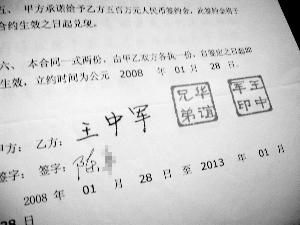 五、 甲方承诺给予乙方五百万元人民币签约金，此签约金将于
合约生效之日起兑现。
六、 本合同一式两份，由甲乙双方各执一份，自签定之日起即
生效，立约时间为公元 2008 年 01 月 28 日。
华谊
兄弟
王中
军印
甲方： 乙方： 王中军
签字： 签字： 陈
2008 年 01 月 28 日 至 2013 年 01 月
28 日